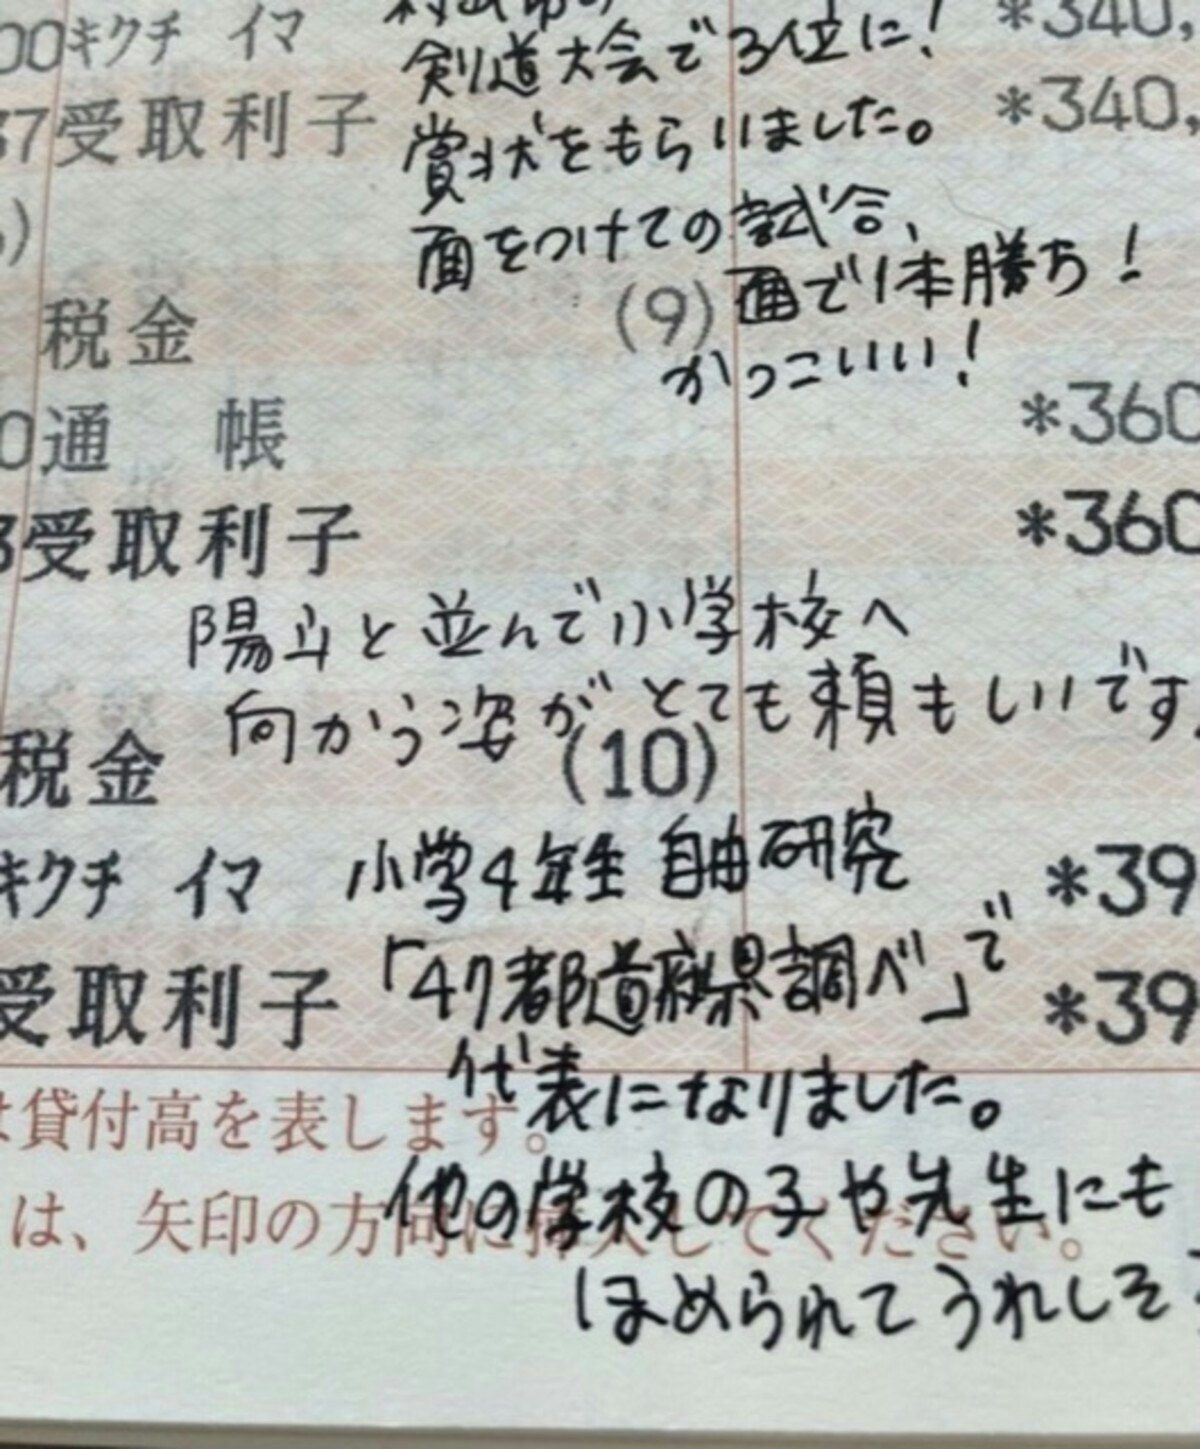 00キクチ イマ
剣道大会で3位に! *340,
37受取利子 賞状をもらいました。 *340,
面をつけての試合、
税金 (9) 面で1本勝ち!
かっこいい!
0通 帳 *360
3受取利子 *360
陽斗と並んで小学校へ
向かう姿がとても頼もしいです。
税金 (10)
キクチ イマ 小学4年生 自由研究 *39
受取利子 「47都道府県調べ」で *39
代表になりました。
は貸付高を表します。
他の学校の子や先生にも
は、矢印の方向に挿入してください。
ほめられてうれしそ